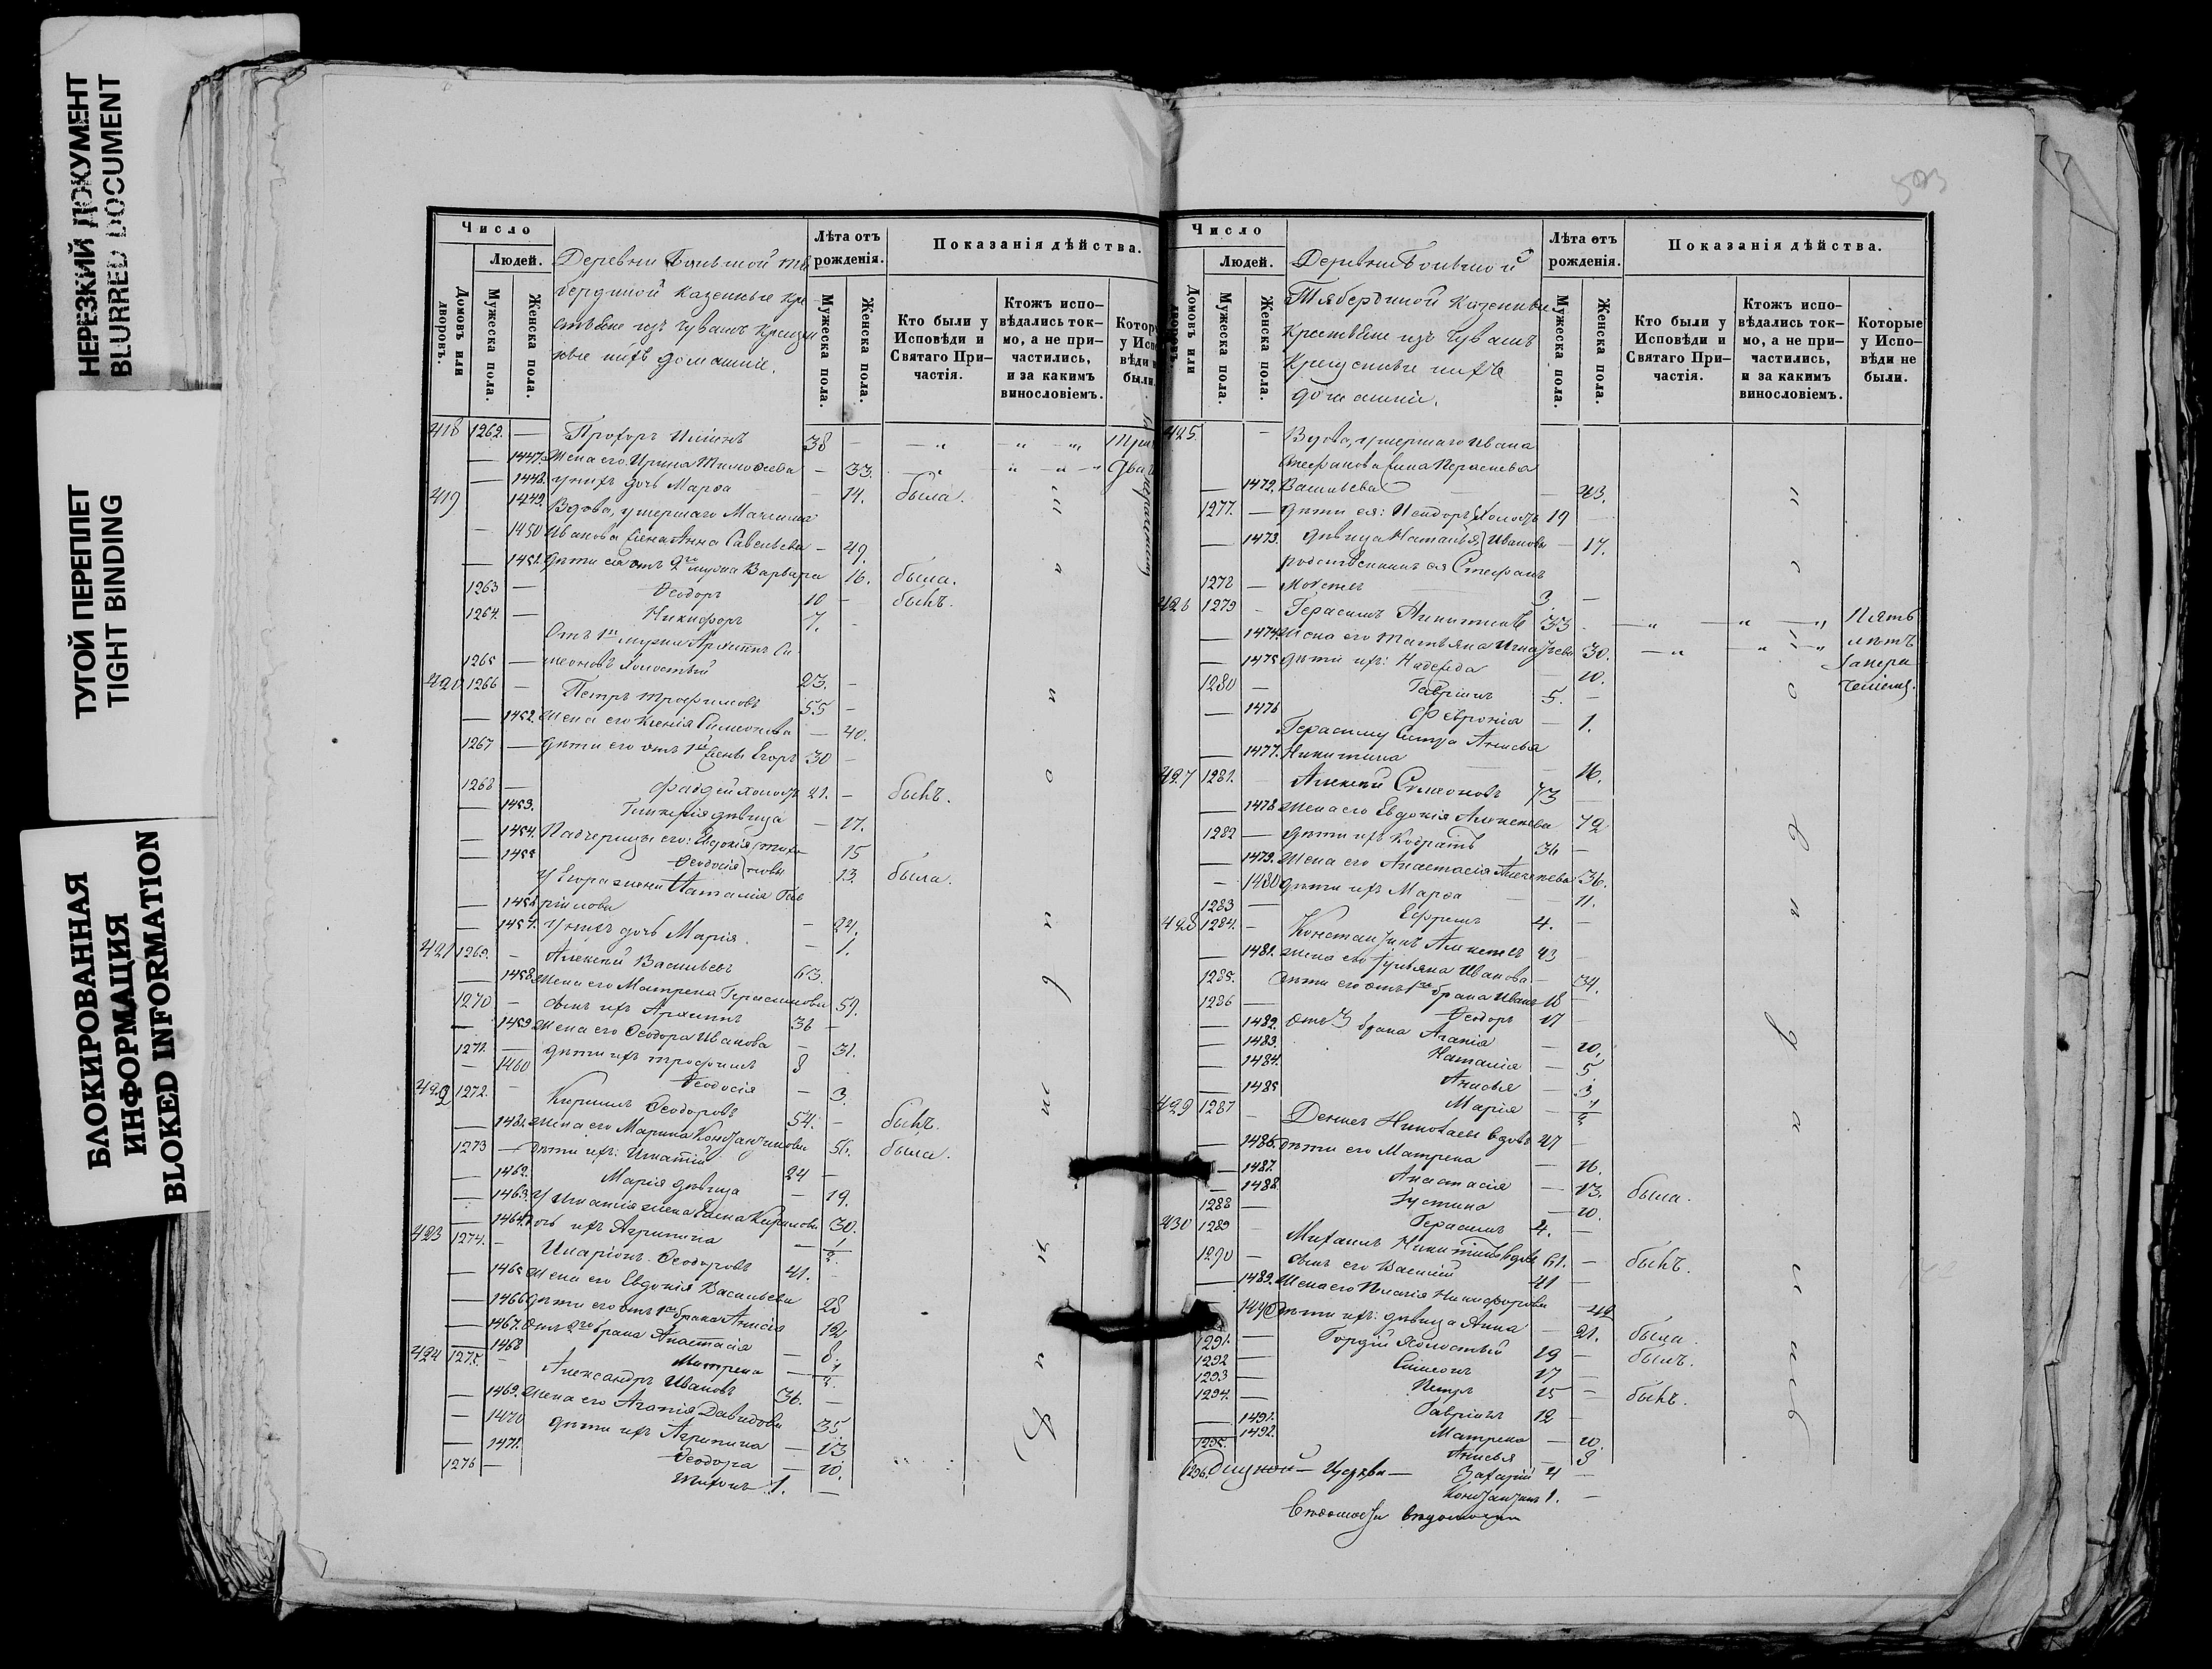 НЕРЕЗКИЙ ДОКУМЕНТ
BLURRED DOCUMENT
ТУГОЙ ПЕРЕПЛЕТ
TIGHT BINDING
БЛОКИРОВАННАЯ
ИНФОРМАЦИЯ
BLOKED INFORMATION
Число
Людей.
Домовъ или дворовъ.
Мужеска пола.
Женска пола.
Деревни Большой Тя
бердиной казенные кре
стьяне изъ Чувашъ крещен
ные и ихъ домашніе.
Лѣта отъ рожденія.
Мужеска пола.
Женска пола.
Показанія дѣйства.
Кто были у Исповѣди и Святаго При-частія.
Ктожъ испо-вѣдались ток-мо, а не при-частились, и за какимъ винословіемъ.
418 1262. — Прохоръ 38 —
— 1447. Жена его Ирина Тимоѳеева — 33.
— 1448. у нихъ дочь Марѳа — 14. была.
419 1449. Вдова, умершаго Максима
— 1450 Иванова жена Анна Савельева — 49.
— 1451. Дѣти ея отъ 2го мужа Варвара 16. была.
1263 — Ѳеодоръ 10 — былъ.
1264. — Никифоръ 7. —
Отъ 1го мужа Архиппъ Си
1265 — меоновъ холостый 23. —
420 1266 — Петръ Трофимовъ 55 —
— 1452. Жена его Ксенія Симеонова — 40.
1267 — Дѣти его отъ 1й жены Егоръ 30 —
1268 — Фаддей холостъ 21. — былъ.
— 1453. Гликерія дѣвица — 17.
— 1454. Падчерицы его: Евдокія Тихо 15
— 1455 Ѳеодосія новы 13. была.
У Егора жена Наталія Гав
— 1456 рилова — 24.
— 1457. У нихъ дочь Марія. — 1.
421 1269. — Алексѣй Васильевъ 63.
— 1458. Жена его Матрена Герасимова 59.
1270 — Сынъ ихъ Архиппъ 36 —
— 1459 Жена его Ѳеодора Иванова — 31.
1271. — Дѣти ихъ Трофимъ 8
— 1460 Ѳеодосія — 3.
422 1272. — Кириллъ Ѳеодоровъ 54. — былъ.
— 1461. Жена его Марина Константинова 56. была.
1273 — Дѣти ихъ: Игнатій 24 —
— 1462. Марія дѣвица — 19.
— 1463. У Игнатія жена Елена Кирилова 30.
— 1464. Дочь ихъ Агрипина — 1/2.
423 1274. — Иларіонъ Ѳеодоровъ 41. —
— 1465 Жена его Евдокія Васильева 28
— 1466 Дѣти его отъ 1го брака Анисія 12
— 1467. Отъ 2го брака Анастасія — 8.
— 1468 Матрена — 1/2.
424 1275. — Александръ Ивановъ 36. —
— 1469. Жена его Агапія Давидова 35.
— 1470 Дѣти ихъ Агрипина — 13
— 1471. Ѳеодора — 10.
1276 — Тихонъ 1. —
Число
Людей.
Домовъ или дворовъ.
Мужеска пола.
Женска пола.
Деревни Большой
Тябердиной казенные
крестьяне изъ Чувашъ
крещенные и ихъ
домашніе.
Лѣта отъ рожденія.
Мужеска пола.
Женска пола.
Показанія дѣйства.
Кто были у Исповѣди и Святаго При-частія.
Ктожъ испо-вѣдались ток-мо, а не при-частились, и за какимъ винословіемъ.
Которые у Испо-вѣди не были.
425. — Вдова, умершаго Ивана
Стефанова жена
— 1472. Васильева — 43.
1277. — Дѣти ея: Исидоръ холостъ 19 —
— 1473. дѣвица Наталья Ивановы — 17.
родственникъ ея Стефанъ
1278 — 3. —
426 1279 — Герасимъ Никитинъ 33 — Пять
— 1474. Жена его Татьяна Игнатьева 30. лѣтъ
— 1475 Дѣти ихъ: Надежда — 10.
1280 — Гавріилъ 5. —
— 1476 Февронія — 1.
Герасиму сестра Анисья
— 1477. Никитина — 16.
427 1281. — Алексѣй Симеоновъ 73 —
— 1478 Жена его Евдокія Алексѣева 72
1282 — Дѣти ихъ Кодратъ 36 —
— 1479. Жена его Анастасія Алексѣева 36.
— 1480 Дѣти ихъ Марѳа — 11.
1283 — Ефремъ 4. —
428 1284. — Константинъ Алексѣевъ 43 —
— 1481. Жена его Ульяна Иванова — 34.
1285. Дѣти его отъ 1го брака Иванъ 18 —
1286 — Ѳеодоръ 17 —
— 1482. Отъ 3 брака Агапія — 10.
— 1483. Наталія — 5
— 1484. Анисья — 3
— 1485 Марія — 1/2
429 1287 — Денисъ Николаевъ вдовъ 47 —
— 1486. Дѣти его Матрена — 16.
— 1487. Анастасія — 13. была.
— 1488. Іустина — 10.
1288 — Герасимъ 4. —
430 1289 — Михаилъ Никитинъ вдовъ 61. — былъ.
1290 — Сынъ его Василій 41 —
— 1489. Жена его Пелагія Никифорова — 42
1490 Дѣти ихъ: дѣвица Анна — 21. была.
1291. — Гордій холостый 19 — былъ.
1292 — Симеонъ 17 —
1293 — Петръ 15 — былъ.
1294. — Гавріилъ 12 —
— 1491. Матрена — 10.
— 1492. Анисья — 8
1295. Захарій 4 —
1296. Константинъ 1. —
Церкви